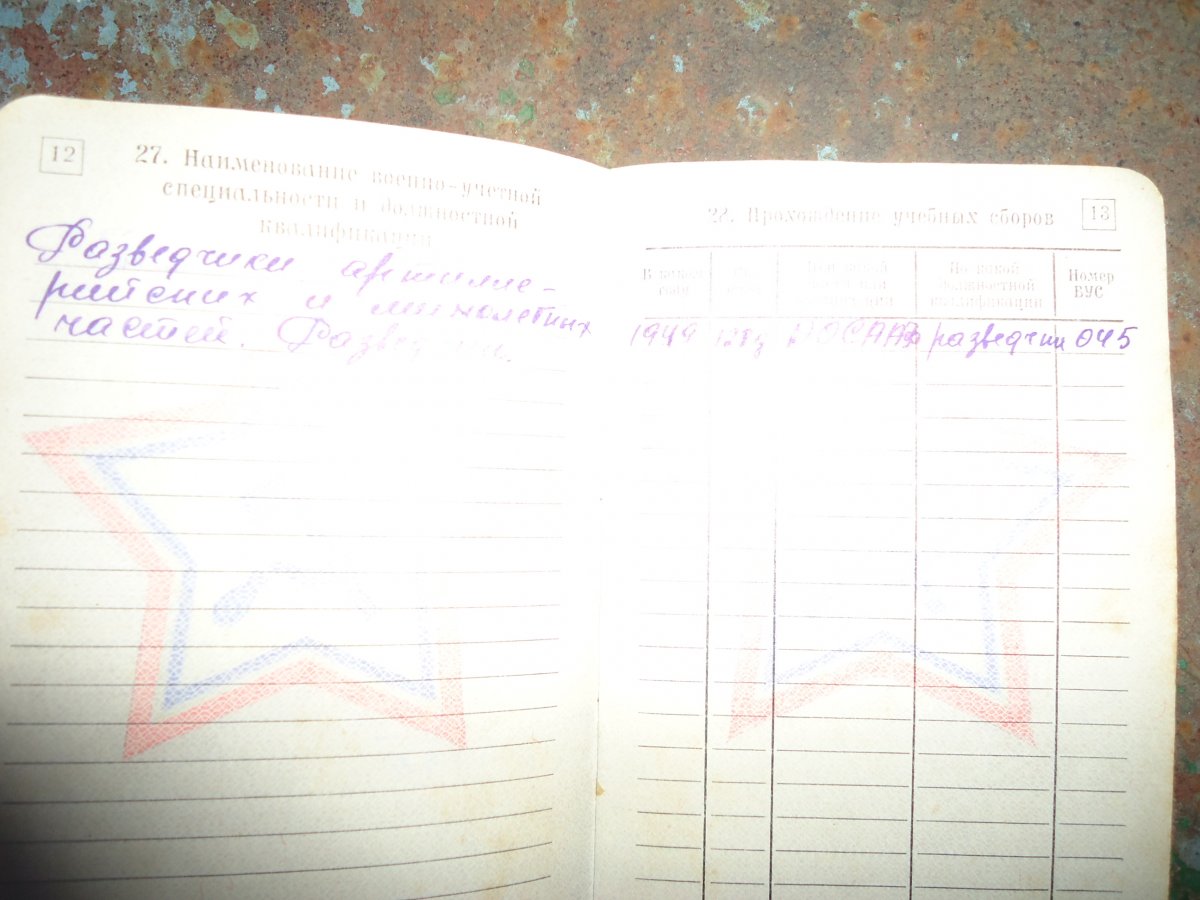 12
27. Наименование военно-учетной
специальности и должностной
квалификации
Разведчики артилле-
рийских и минометных
частей. Разведчик.
28. Прохождение учебных сборов
13
В каком
году
По какой
должностной
квалификации
Номер
ВУС
1949
ДОСААФ
разведчик
045